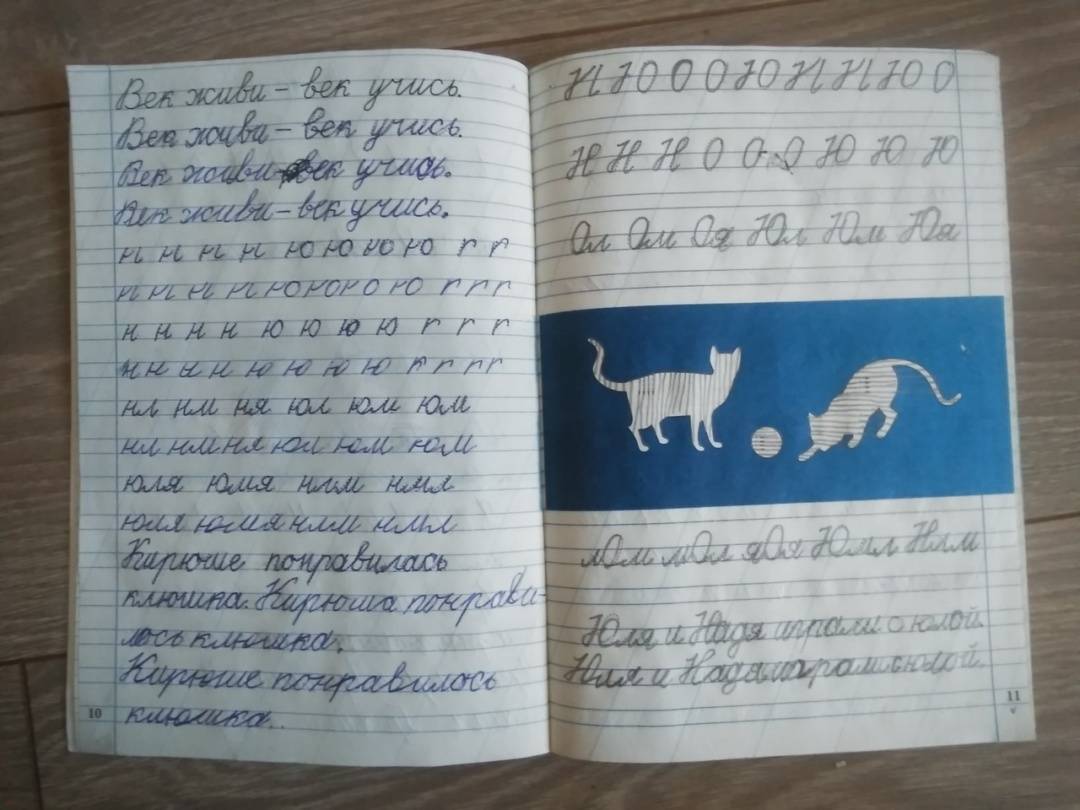 Век живи – век учись.
Век живи – век учись.
Век живи – век учись.
Век живи – век учись.
н н н н ю ю ю ю г г
н н н н ю ю ю ю г г г
н н н н ю ю ю ю г г г
н н н н ю ю ю ю г г г г
нл нм ня юл юм юм
нл нм ня юл юм юм
юля юмя нлм нмл
юля юмя нлм нмл
Кирюше понравилась
клюшка. Кирюша понрави-
лось клюшка.
Кирюше понравилось
клюшка.
10
Н Ю О О Ю Н Н Ю О
Н Н Н О О О Ю Ю Ю
Ол Ом Оя Юл Юм Юя
мОм мОл яОя Юмл Нлм
Юля и Надя играли с юлой.
Юля и Надя играли с юлой.
11